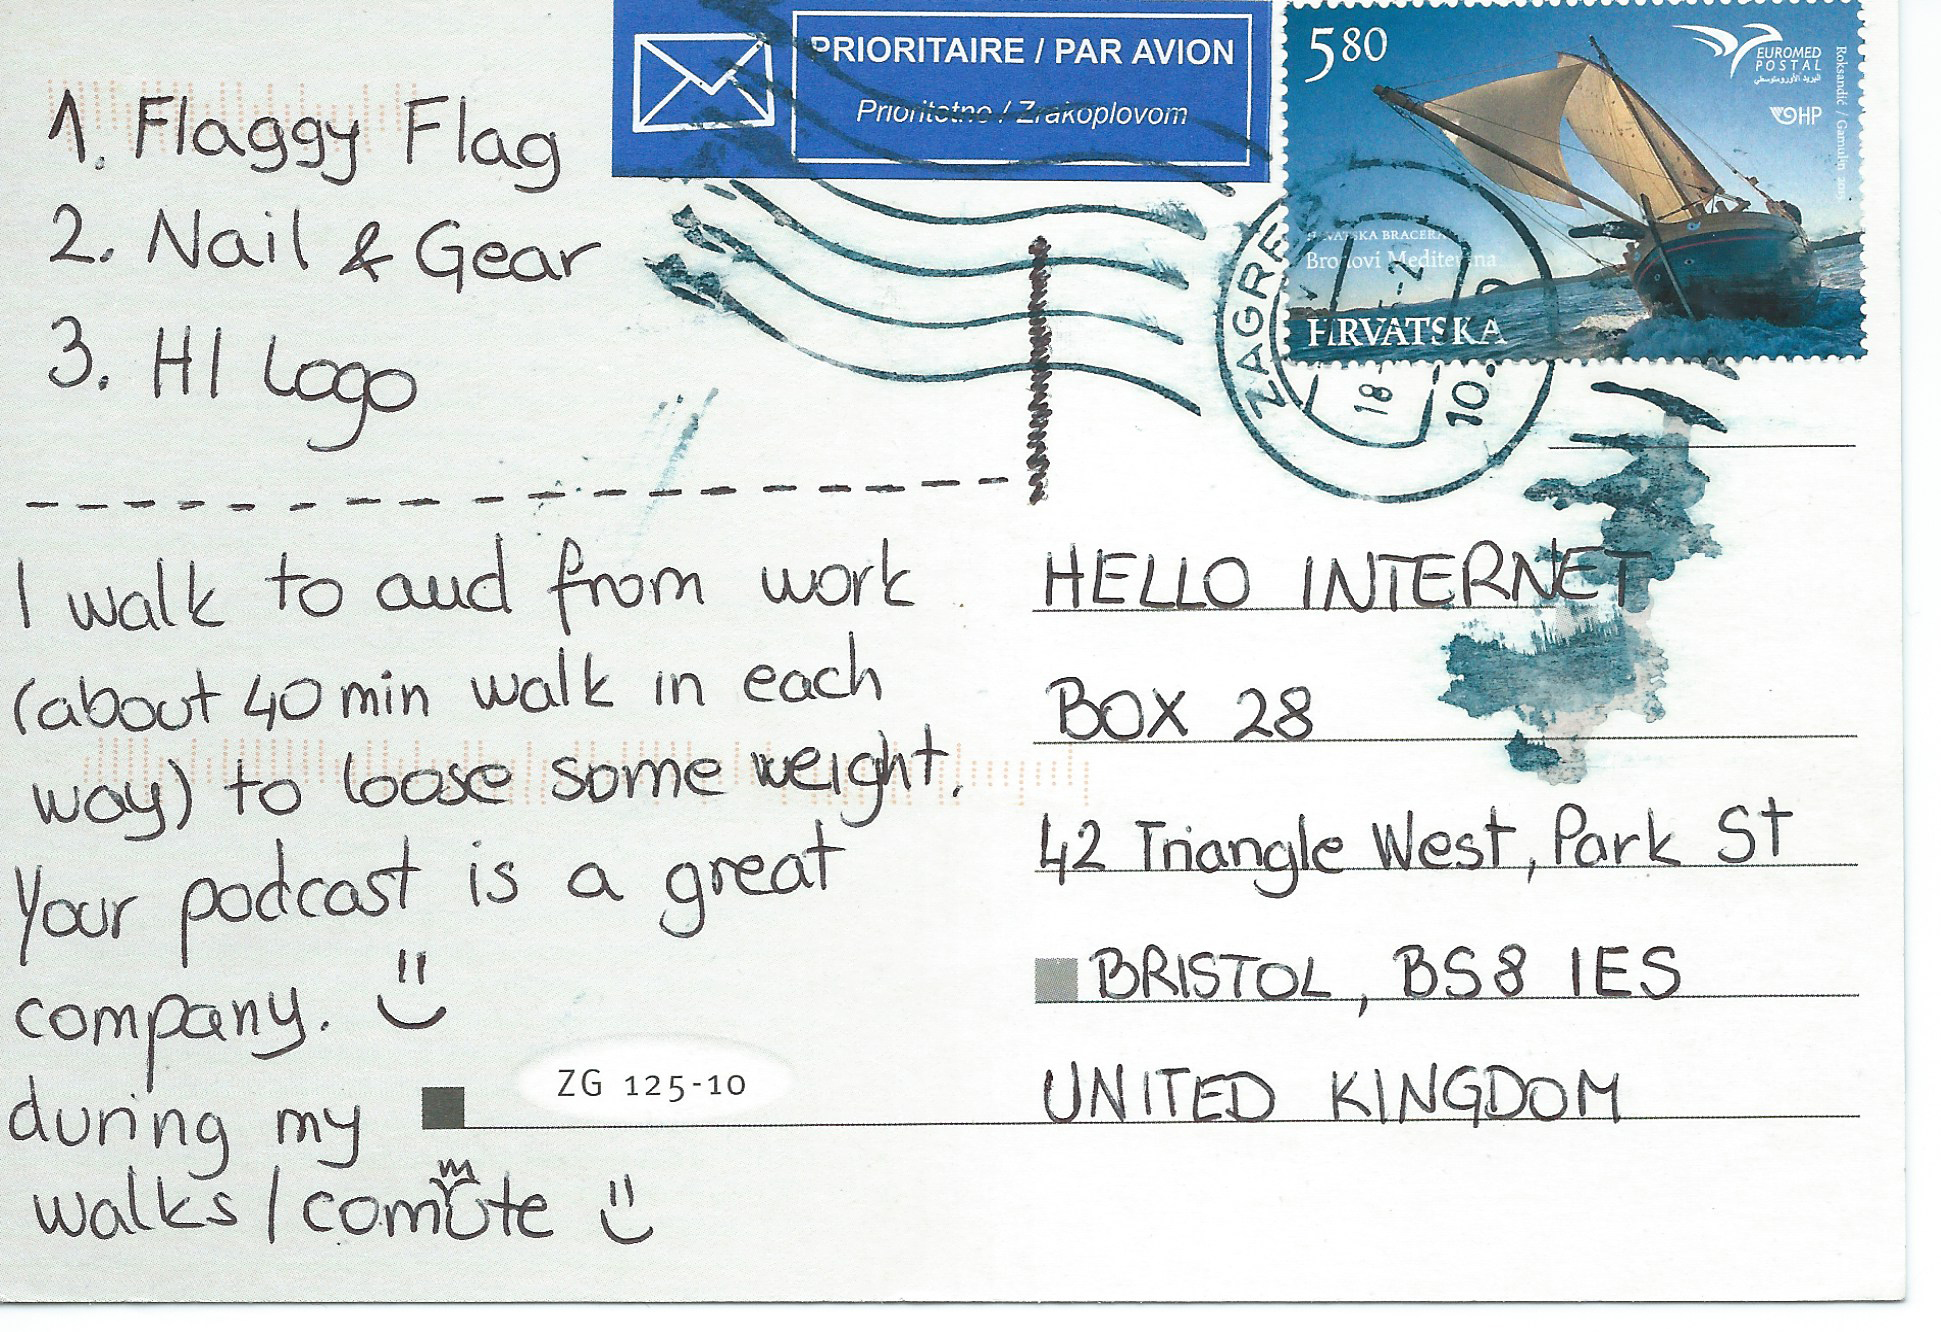 1. Flaggy Flag
2. Nail & Gear
3. HI Logo
I walk to and from work
(about 40 min walk in each
way) to loose some weight.
Your podcast is a great
company.
during my
walks / commute
ZG 125-10
PRIORITAIRE / PAR AVION
Prioritetno / Zrakoplovom
580
EUROMED
POSTAL
البريد الأورومتوسطي
HP
Roksandić / Gamulin
HRVATSKA BRACERA
Brodovi Mediterana
HRVATSKA
ZAGRE
18
10.
HELLO INTERNET
BOX 28
42 Triangle West, Park St
BRISTOL, BS8 1ES
UNITED KINGDOM